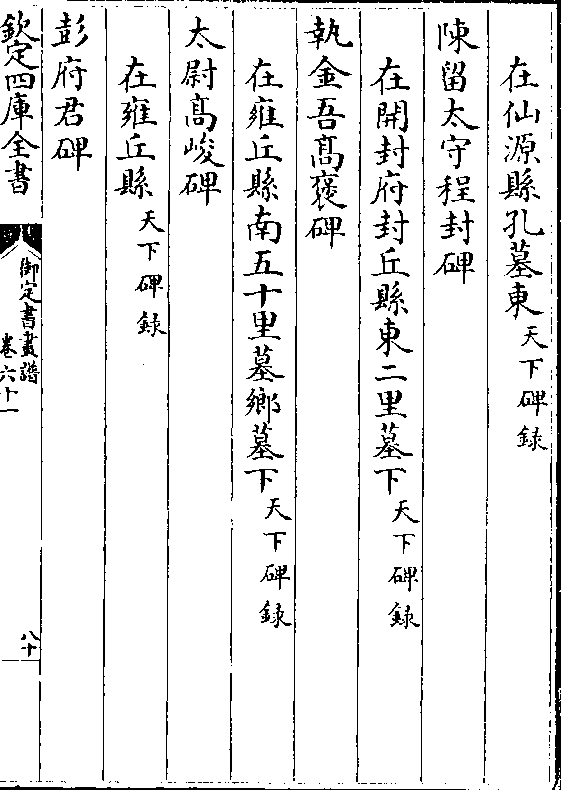 在仙源縣孔墓東天下碑録
陳留太守程封碑
在開封府封丘縣東二里墓下天下碑録
執金吾髙襃碑
在雍丘縣南五十里墓鄉墓下天下碑録
太尉髙峻碑
在雍丘縣天下碑録
彭府君碑
欽定四庫全書
御定書畫譜
卷六十一
八十